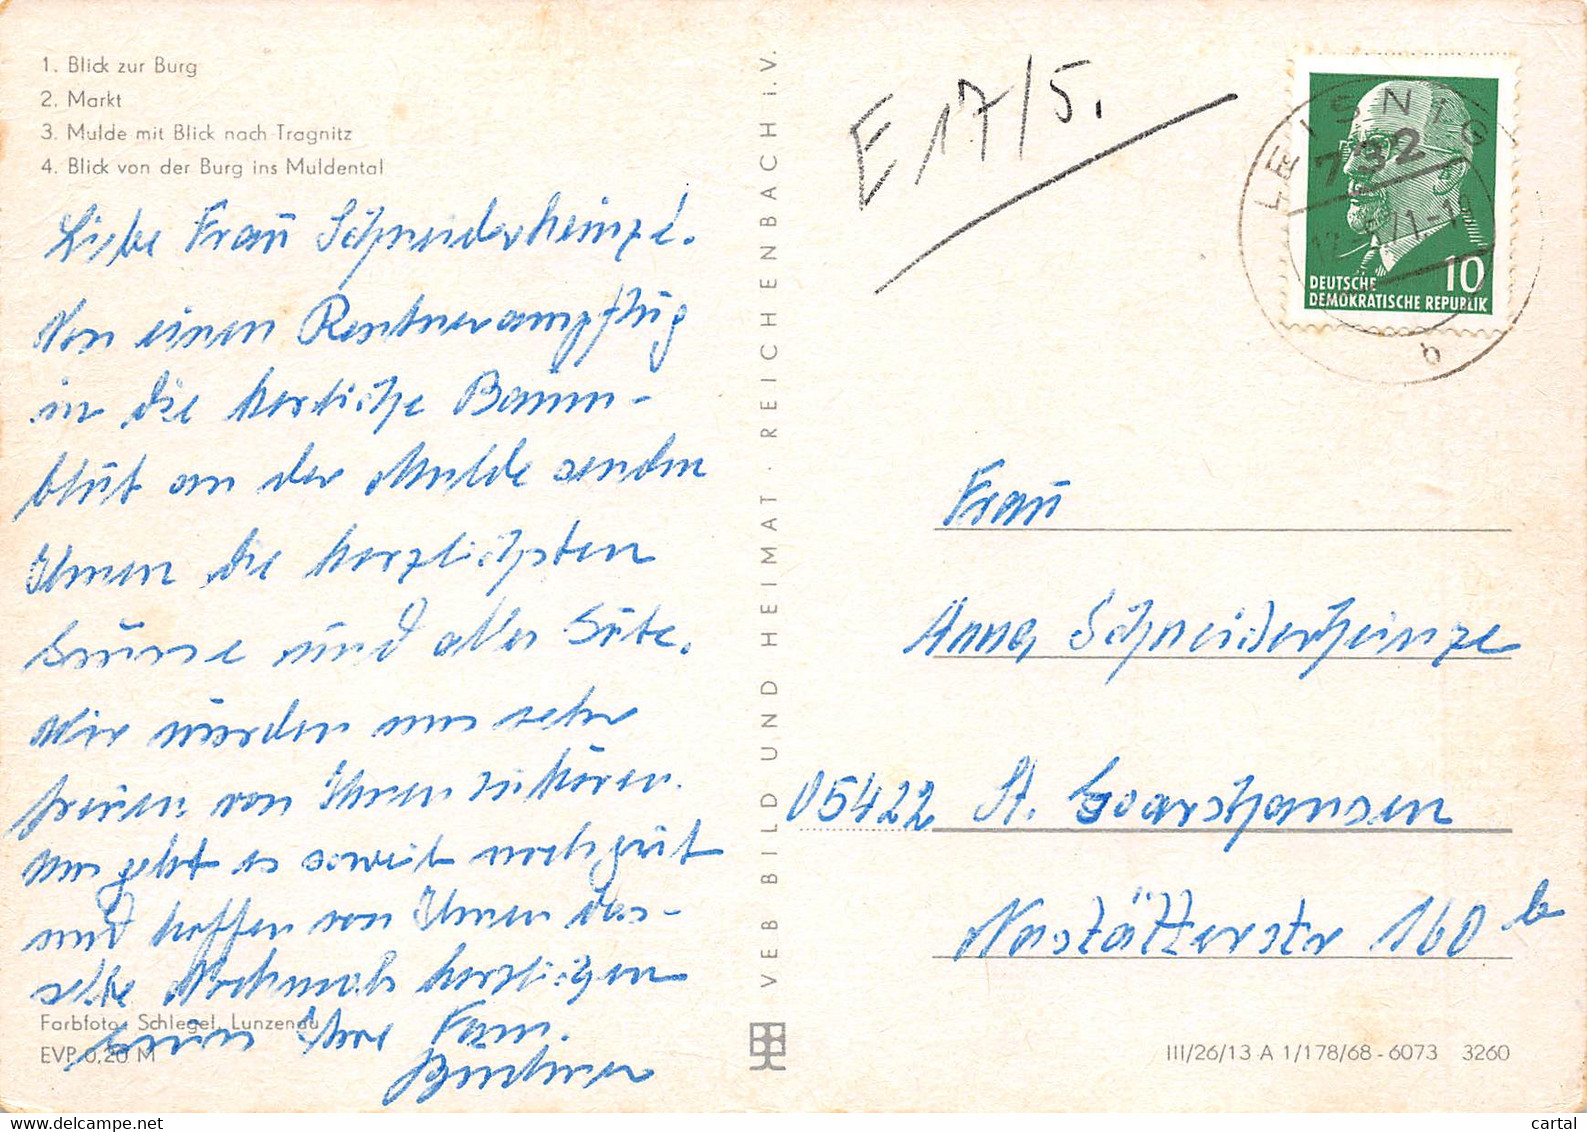 1. Blick zur Burg
2. Markt
3. Mulde mit Blick nach Tragnitz
4. Blick von der Burg ins Muldental
Liebe Frau Schneiderheinze!
Von einen Rentnerampflug
in die herrliche Baum-
blüt an der Mulde senden
Ihnen die herzlichsten
Grüsse und alles Gute.
Wir würden uns sehr
freuen von Ihnen zu hören.
Uns geht es soweit noch gut
und hoffen von Ihnen das-
selbe Nochmals herzlichen
Ihre Fam.
Farbfoto: Schlegel, Lunzenau
EVP 0,20 M
VEB BILD UND HEIMAT · REICHENBACH i. V.
E 17/5.
LEISNIG
732
12.-5.71-19
b
10
DEUTSCHE
DEMOKRATISCHE REPUBLIK
Frau
Anna Schneiderheinze
05422 St. Goarshausen
Nastätterstr 160 b
III/26/13 A 1/178/68 - 6073 3260
cartal